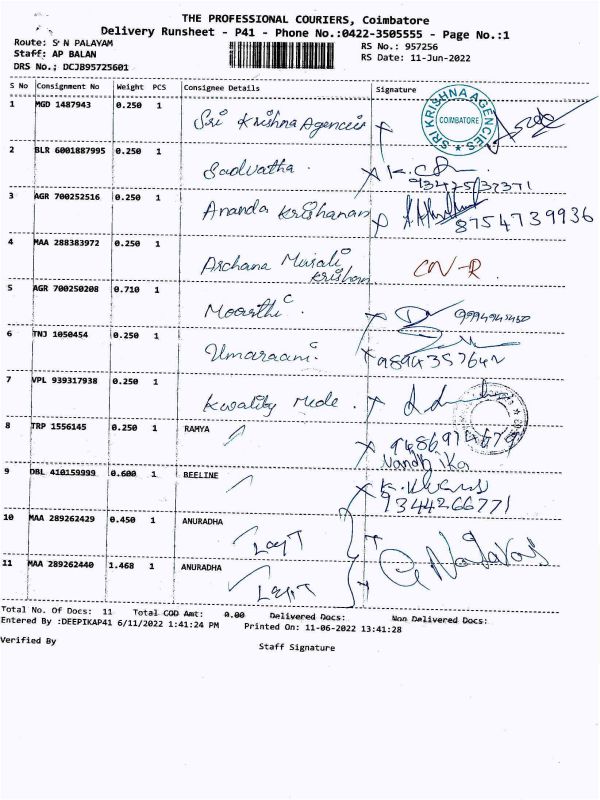 THE PROFESSIONAL COURIERS, Coimbatore
Delivery Runsheet - P41 - Phone No.:0422-3505555 - Page No.:1
Route: S N PALAYAM
RS No.: 957256
Staff: AP BALAN
RS Date: 11-Jun-2022
DRS No.; DCJB95725601
S No Consignment No Weight PCS Consignee Details Signature
1 MGD 1487943 0.250 1 Sri Krishna Agencies
SRI KRISHNA AGENCIES COIMBATORE
2 BLR 6001887995 0.250 1 Sadvatha.
3 AGR 700252516 0.250 1 Ananda Krishanan 8754739936
4 MAA 288383972 0.250 1 Archana Murali
Krishnan
5 AGR 700250208 0.710 1 Moorthi
6 TNJ 1050454 0.250 1 Umaraani.
7 VPL 939317938 0.250 1 Kwality Mede.
8 TRP 1556145 0.250 1 RAMYA
Nandhika
9 DBL 410159999 0.600 1 BEELINE
9344266771
10 MAA 289262429 0.450 1 ANURADHA
11 MAA 289262440 1.468 1 ANURADHA
Total No. Of Docs: 11 Total COD Amt: 0.00 Delivered Docs: Non Delivered Docs:
Entered By :DEEPIKAP41 6/11/2022 1:41:24 PM Printed On: 11-06-2022 13:41:28
Verified By
Staff Signature